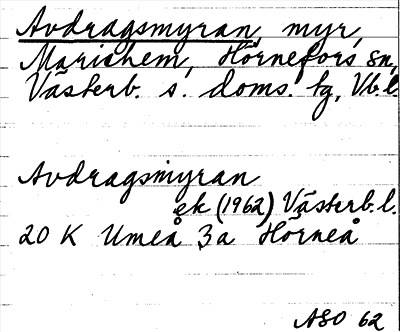 Avdragsmyran, myr,
Mariehem, Hörnefors sn,
Västerb. s. doms. tg, Vb.l.
Avdragsmyran
ek (1962) Västerb.l.
20 K Umeå 3a Hörneå
ASO 62